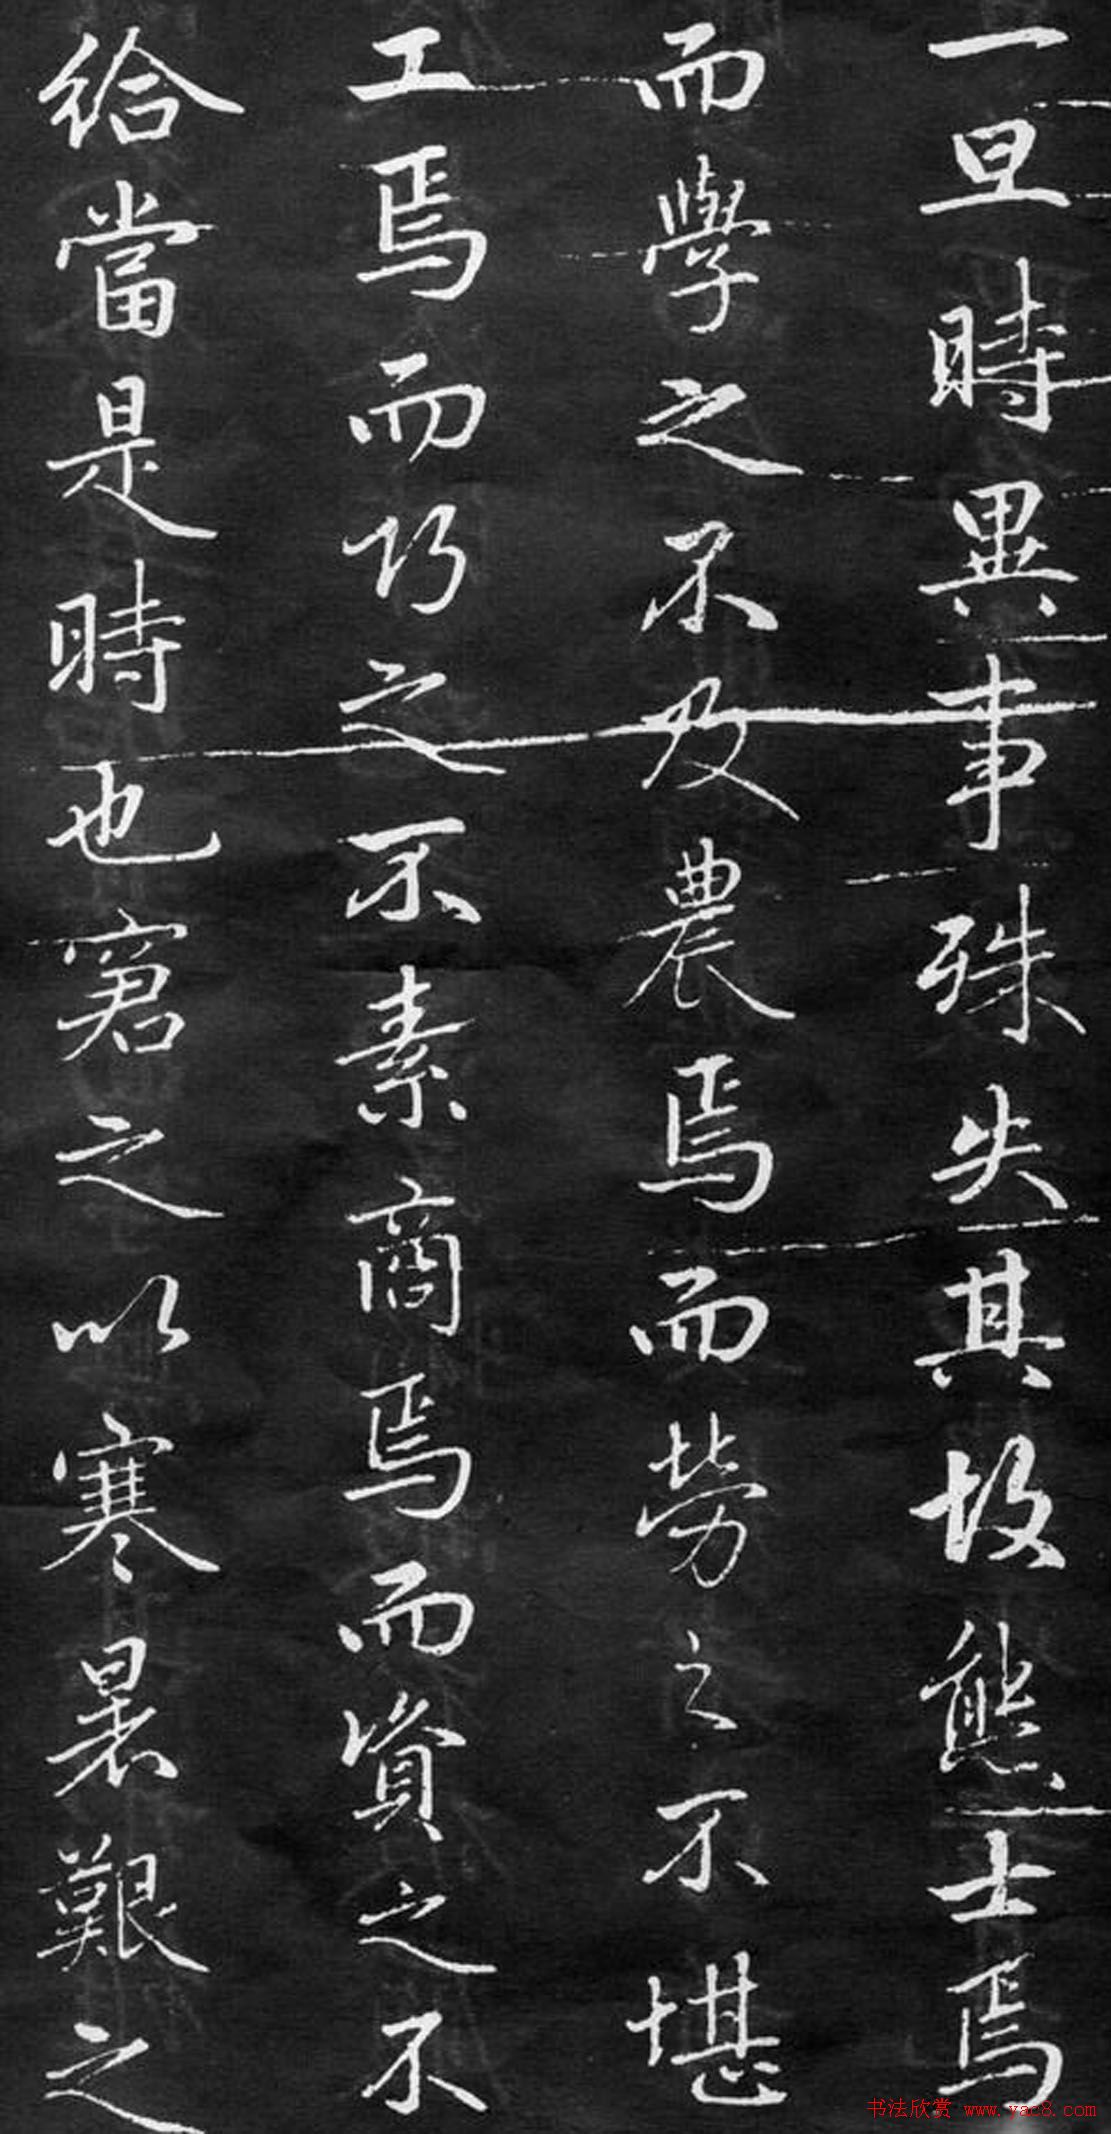 一旦時異事殊失其故態士焉
而學之不及農焉而勞之不堪
工焉而巧之不素商焉而資之不
給當是時也窘之以寒暑艱之
书法欣赏 www.yac8.com